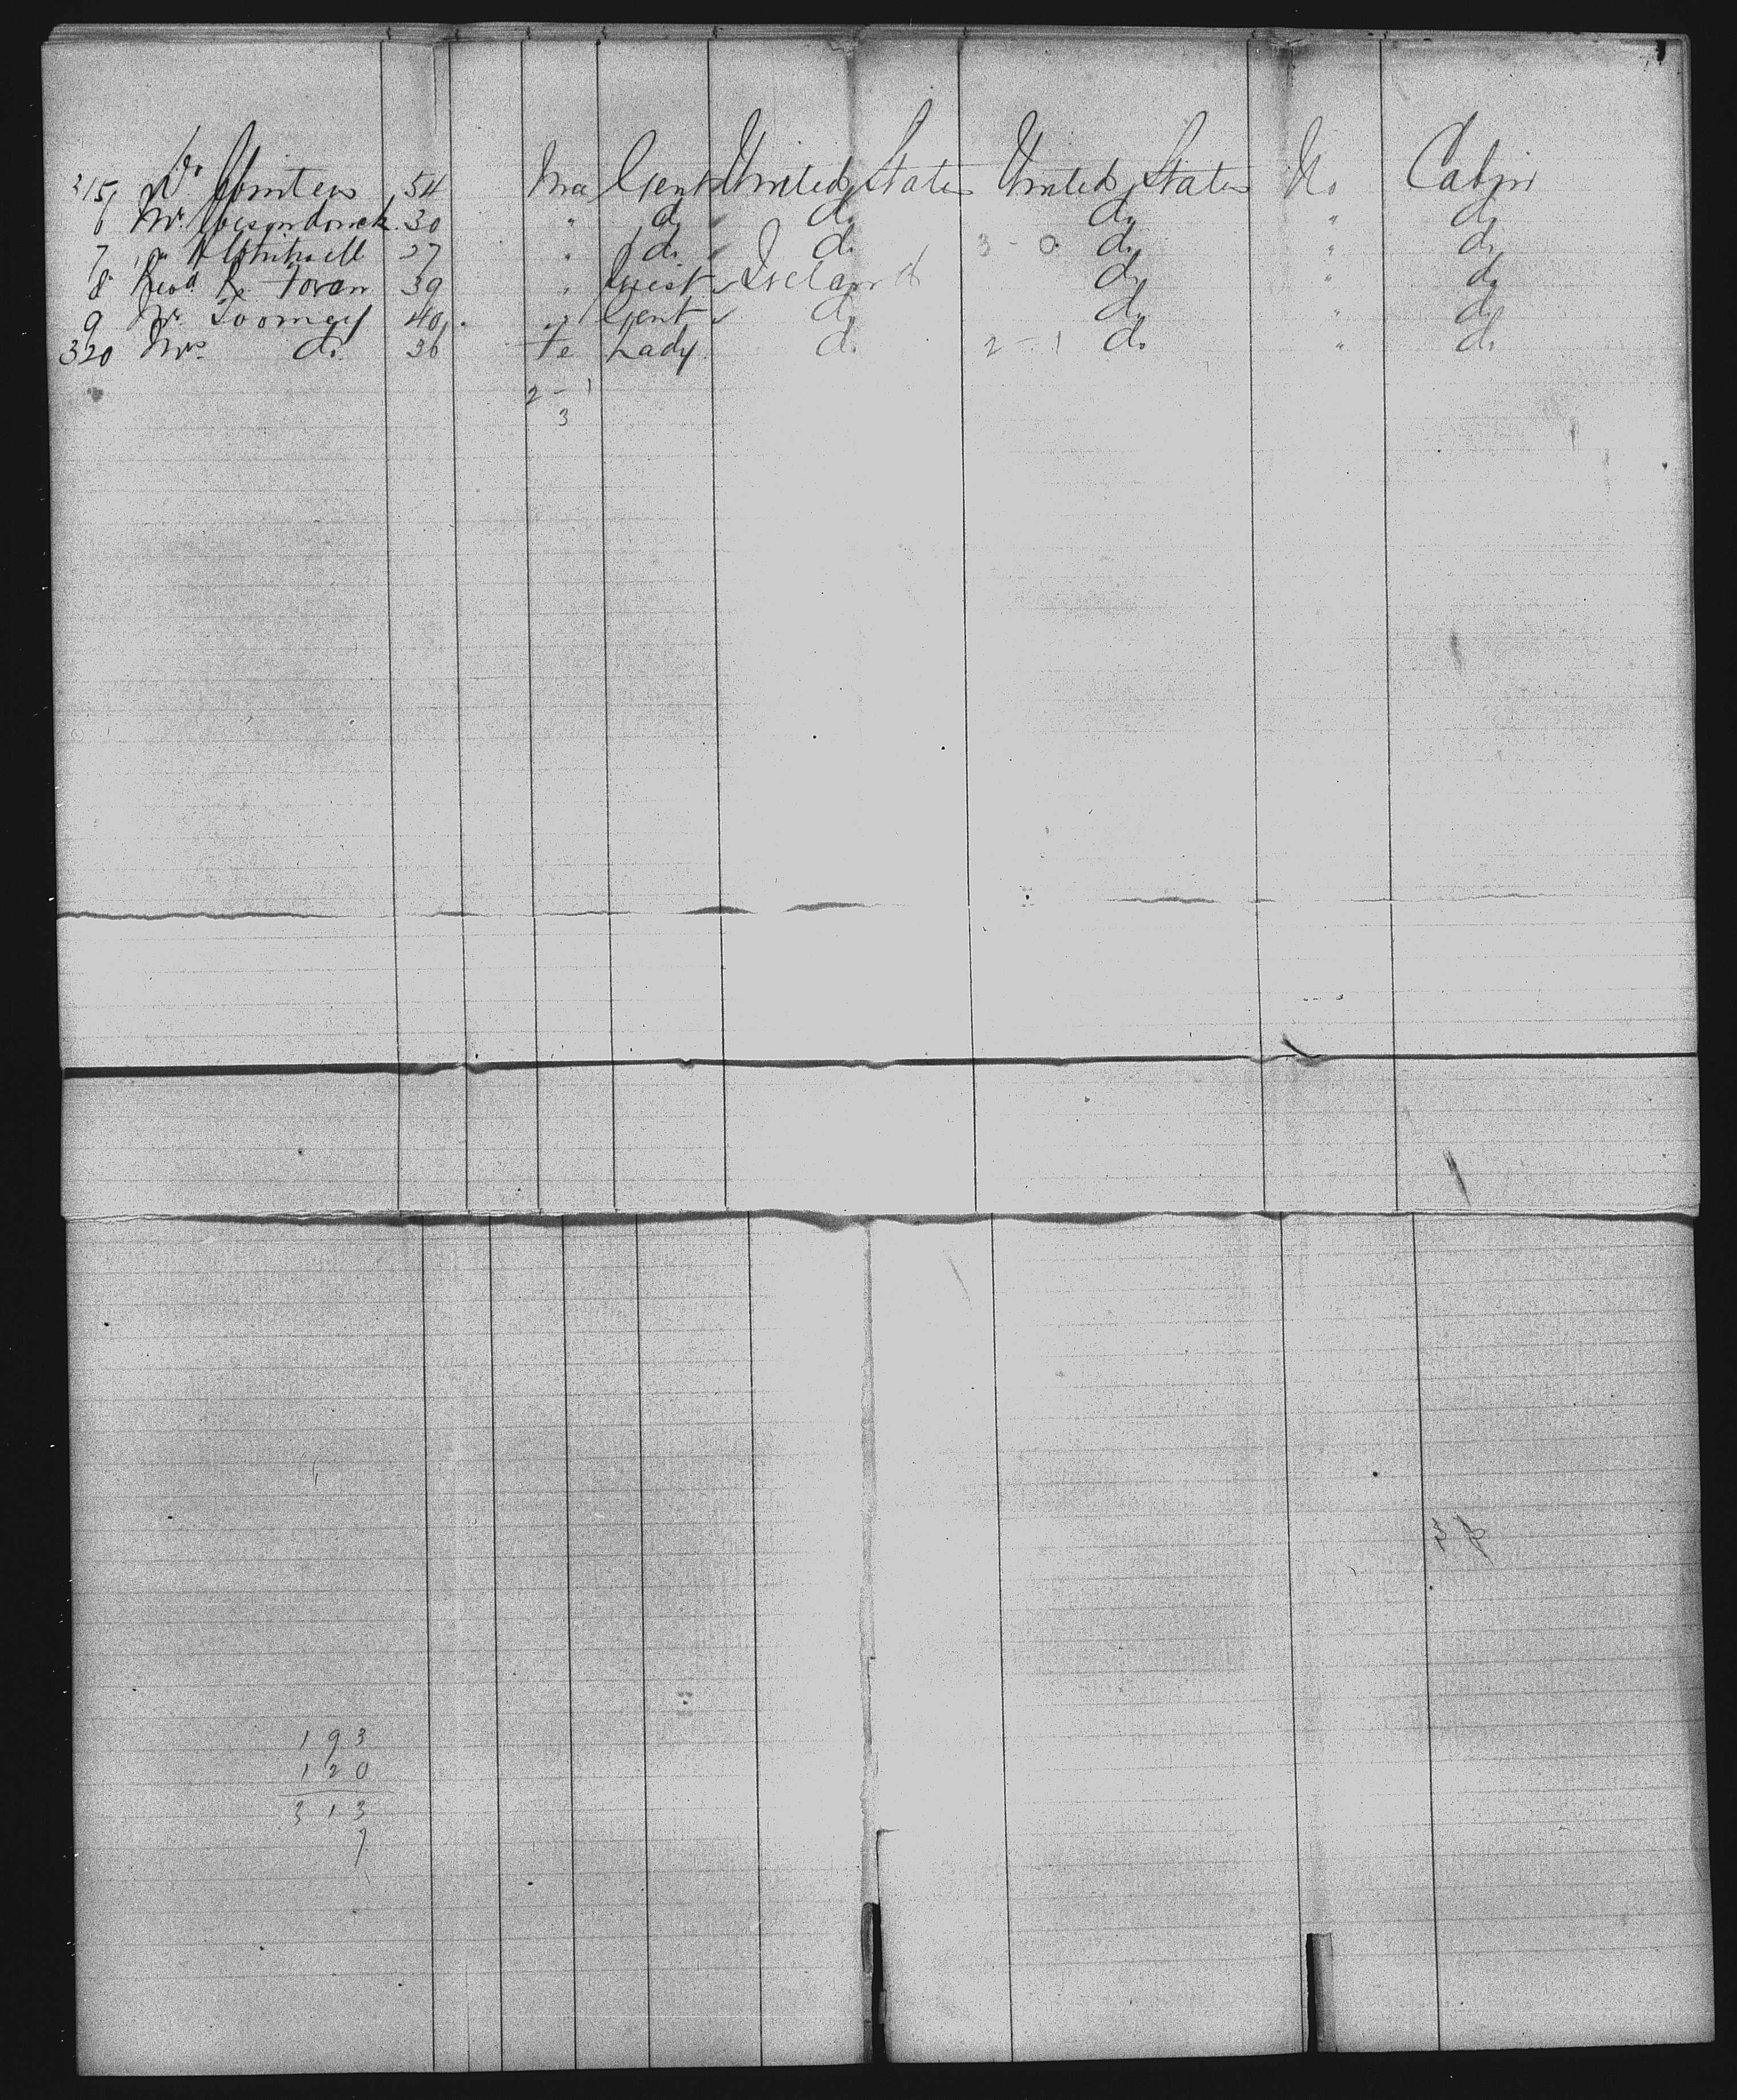 315 Mr Winters 54 Ma Gent United States United States No Cabin
6 Mr Wesendonck 30 " do do do " do
7 " 37 " do do 3 - 0 do " do
8 Revd R Foran 39 " Priest Ireland do " do
9 Mr Toomey 40 " Gent do do " do
320 Mrs do 36 Fe Lady do 2 - 1 do " do
2 - 1
3
193
120
313
7